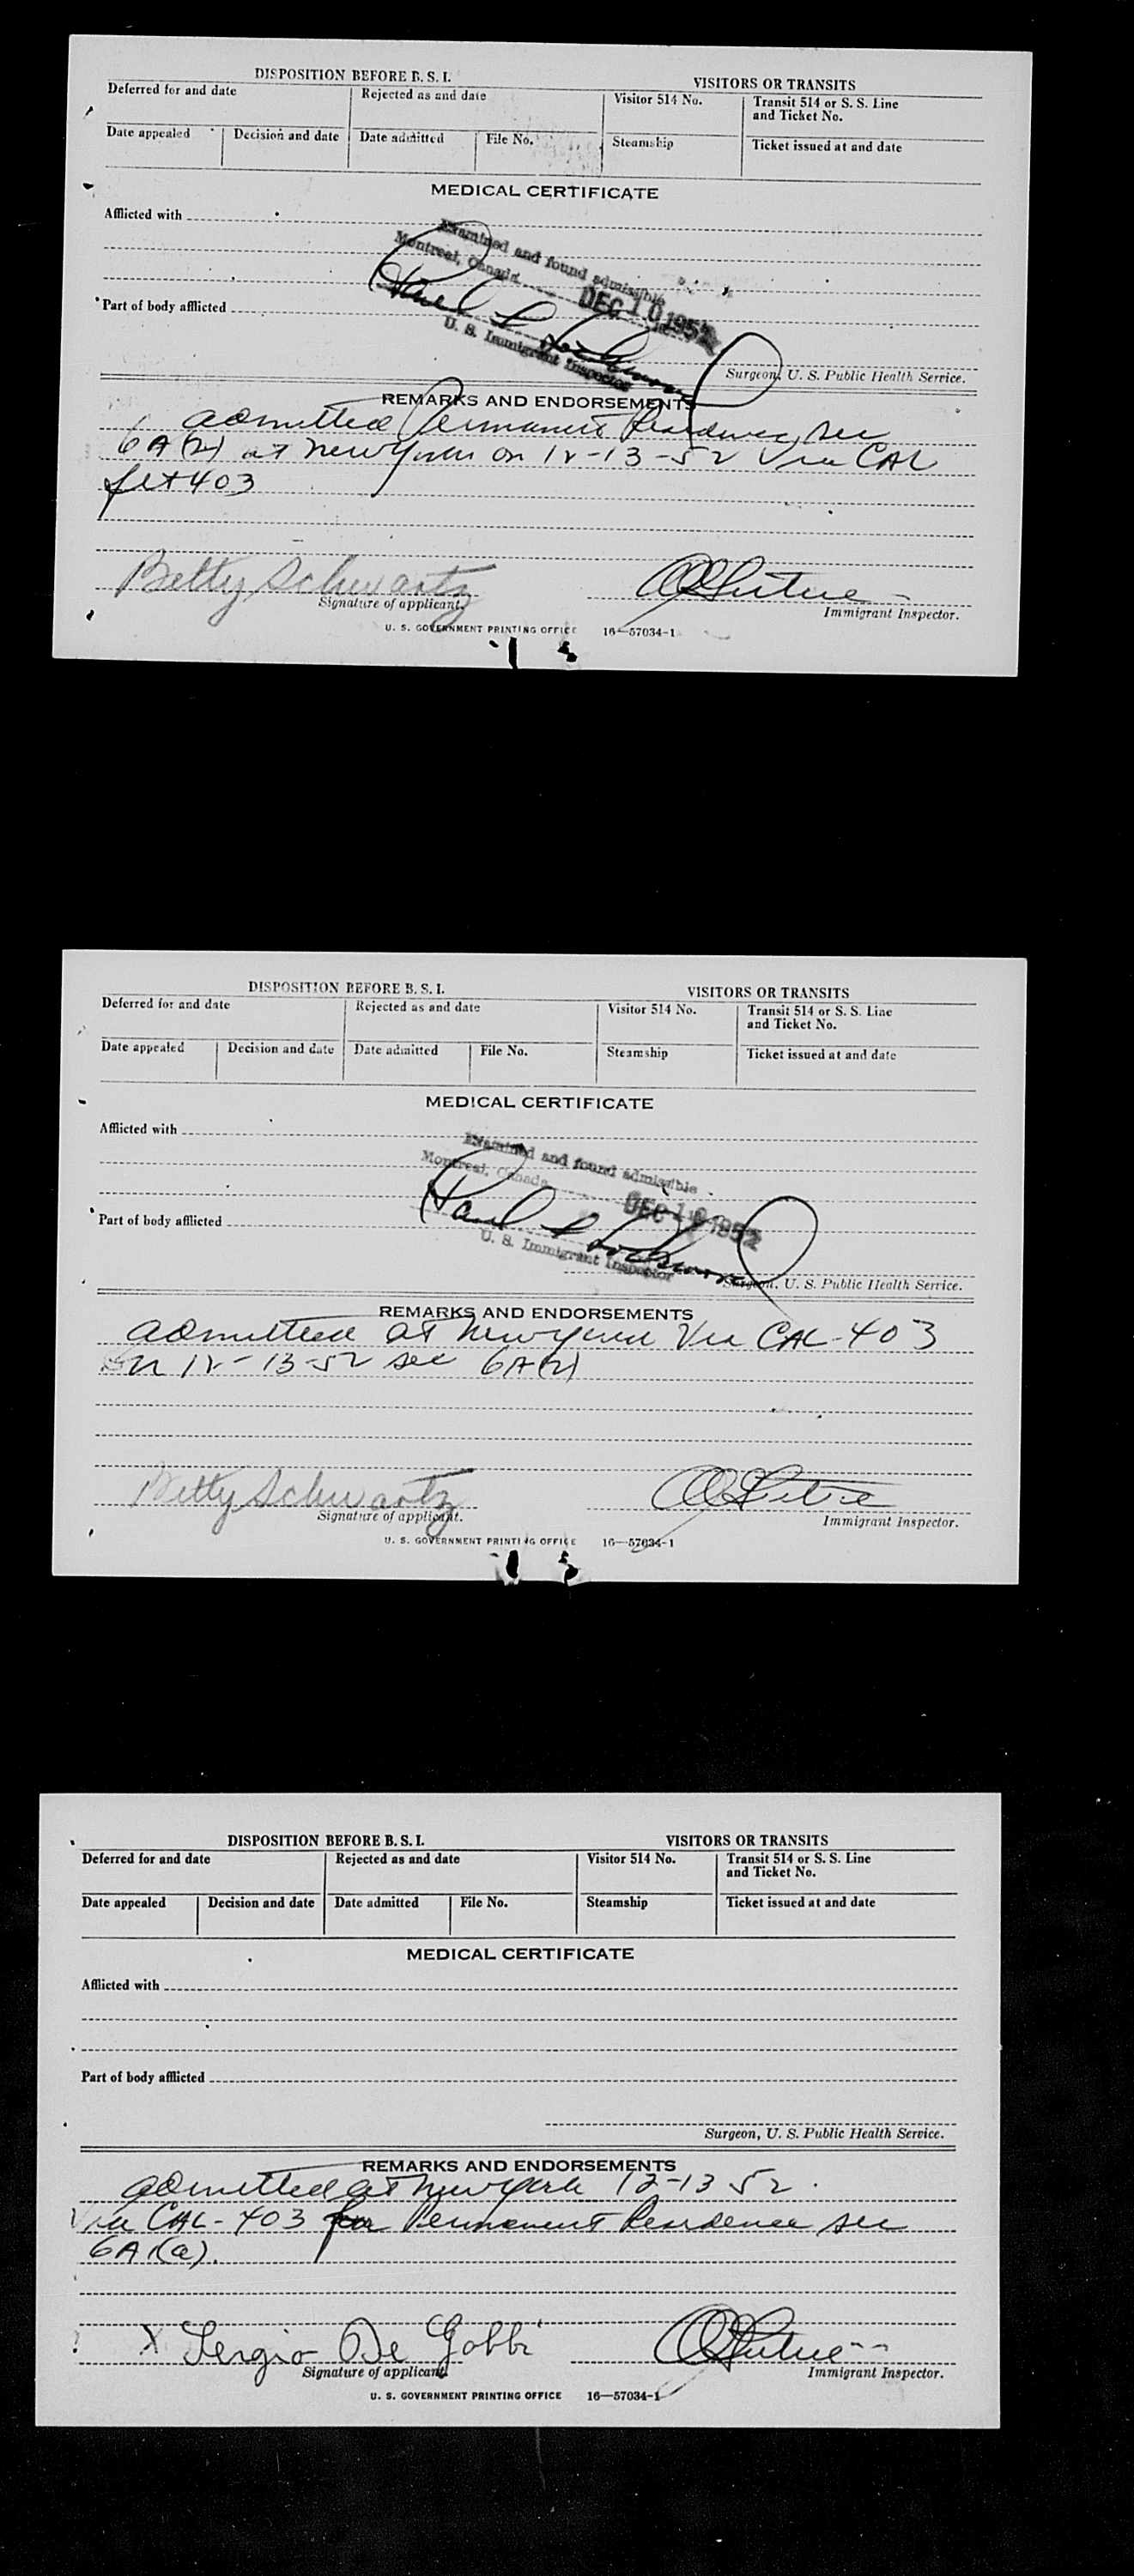 DISPOSITION BEFORE B. S. I.
VISITORS OR TRANSITS
Deferred for and date
Rejected as and date
Visitor 514 No.
Transit 514 or S. S. Line
and Ticket No.
Date appealed
Decision and date
Date admitted
File No.
Steamship
Ticket issued at and date
MEDICAL CERTIFICATE
Afflicted with
Examined and found admissible
Montreal, Canada
DEC 10 1952
Part of body afflicted
U. S. Immigrant Inspector
Surgeon, U. S. Public Health Service.
REMARKS AND ENDORSEMENTS
admitted Permanent Residence, sec
6A(2) at New York on 12-13-52 Via CAL
flt 403
Betty Schwartz
Signature of applicant.
Immigrant Inspector.
U. S. GOVERNMENT PRINTING OFFICE 16—57034-1
DISPOSITION BEFORE B. S. I.
VISITORS OR TRANSITS
Deferred for and date
Rejected as and date
Visitor 514 No.
Transit 514 or S. S. Line
and Ticket No.
Date appealed
Decision and date
Date admitted
File No.
Steamship
Ticket issued at and date
MEDICAL CERTIFICATE
Afflicted with
Examined and found admissible
Montreal, Canada
DEC 10 1952
Part of body afflicted
U. S. Immigrant Inspector
Surgeon, U. S. Public Health Service.
REMARKS AND ENDORSEMENTS
admitted at New York Via CAL-403
on 12-13-52 sec 6A(2)
Betty Schwartz
Signature of applicant.
Immigrant Inspector.
U. S. GOVERNMENT PRINTING OFFICE 16—57034-1
DISPOSITION BEFORE B. S. I.
VISITORS OR TRANSITS
Deferred for and date
Rejected as and date
Visitor 514 No.
Transit 514 or S. S. Line
and Ticket No.
Date appealed
Decision and date
Date admitted
File No.
Steamship
Ticket issued at and date
MEDICAL CERTIFICATE
Afflicted with
Part of body afflicted
Surgeon, U. S. Public Health Service.
REMARKS AND ENDORSEMENTS
admitted at New York 12-13 52.
Via CAL-403 for Permanent Residence sec
6A1(a).
X Sergio De Gobbi
Signature of applicant.
Immigrant Inspector.
U. S. GOVERNMENT PRINTING OFFICE 16—57034-1